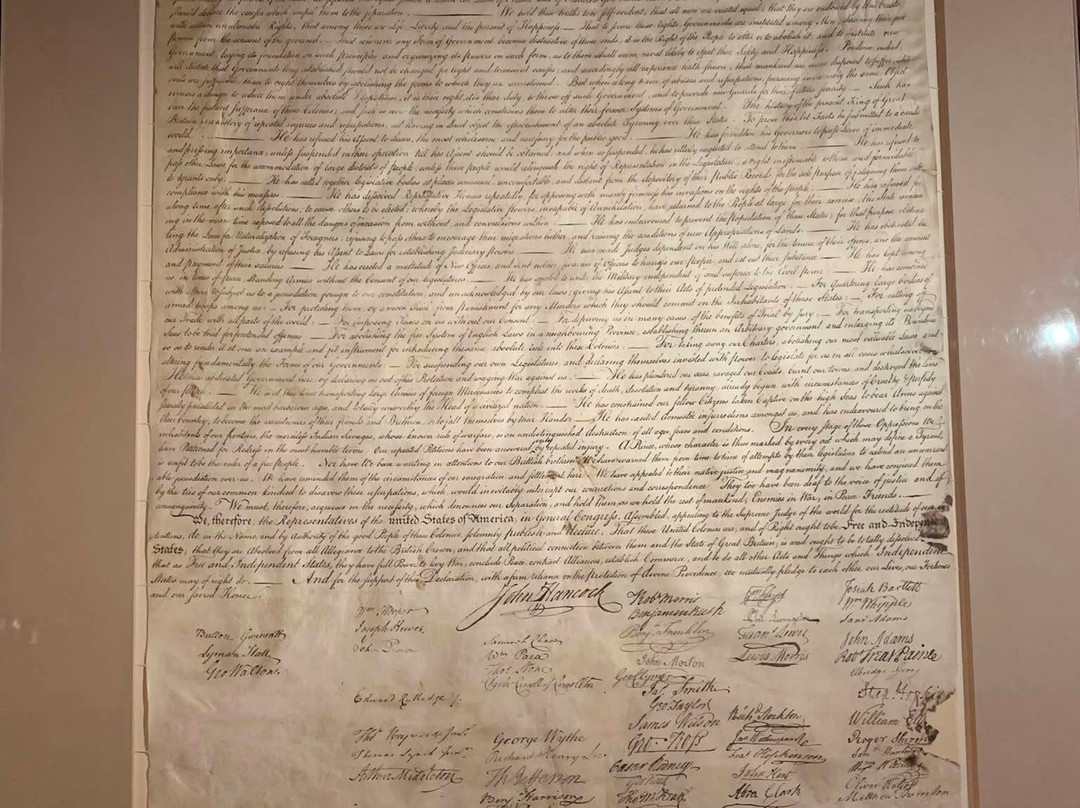 should declare the causes which impel them to the separation. We hold these truths to be self-evident, that all men are created equal, that they are endowed by their Creator
with certain unalienable Rights, that among these are Life, Liberty and the pursuit of Happiness.— That to secure these rights, Governments are instituted among Men, deriving their just
powers from the consent of the governed,— That whenever any Form of Government becomes destructive of these ends, it is the Right of the People to alter or to abolish it, and to institute new
Government, laying its foundation on such principles and organizing its powers in such form, as to them shall seem most likely to effect their Safety and Happiness. Prudence, indeed,
will dictate that Governments long established should not be changed for light and transient causes; and accordingly all experience hath shewn, that mankind are more disposed to suffer, while
evils are sufferable, than to right themselves by abolishing the forms to which they are accustomed. But when a long train of abuses and usurpations, pursuing invariably the same Object
evinces a design to reduce them under absolute Despotism, it is their right, it is their duty, to throw off such Government, and to provide new Guards for their future security.— Such has
been the patient sufferance of these Colonies; and such is now the necessity which constrains them to alter their former Systems of Government. The history of the present King of Great
Britain is a history of repeated injuries and usurpations, all having in direct object the establishment of an absolute Tyranny over these States. To prove this, let Facts be submitted to a candid
world. He has refused his Assent to Laws, the most wholesome and necessary for the public good. He has forbidden his Governors to pass Laws of immediate
and pressing importance, unless suspended in their operation till his Assent should be obtained; and when so suspended, he has utterly neglected to attend to them. He has refused to
pass other Laws for the accommodation of large districts of people, unless those people would relinquish the right of Representation in the Legislature, a right inestimable to them and formidable
to tyrants only. He has called together legislative bodies at places unusual, uncomfortable, and distant from the depository of their Public Records, for the sole purpose of fatiguing them into
compliance with his measures. He has dissolved Representative Houses repeatedly, for opposing with manly firmness his invasions on the rights of the people. He has refused for
a long time, after such dissolutions, to cause others to be elected; whereby the Legislative powers, incapable of Annihilation, have returned to the People at large for their exercise; the State remain-
ing in the mean time exposed to all the dangers of invasion from without, and convulsions within. He has endeavoured to prevent the population of these States; for that purpose obstruc-
ting the Laws for Naturalization of Foreigners; refusing to pass others to encourage their migrations hither, and raising the conditions of new Appropriations of Lands. He has obstructed the
Administration of Justice, by refusing his Assent to Laws for establishing Judiciary powers. He has made Judges dependent on his Will alone, for the tenure of their offices, and the amount
and payment of their salaries. He has erected a multitude of New Offices, and sent hither swarms of Officers to harrass our people, and eat out their substance. He has kept among
us, in times of peace, Standing Armies without the Consent of our legislatures. He has affected to render the Military independent of and superior to the Civil power. He has combined
with others to subject us to a jurisdiction foreign to our constitution, and unacknowledged by our laws; giving his Assent to their Acts of pretended Legislation:— For Quartering large bodies of
armed troops among us:— For protecting them, by a mock Trial, from punishment for any Murders which they should commit on the Inhabitants of these States:— For cutting off
our Trade with all parts of the world:— For imposing Taxes on us without our Consent:— For depriving us in many cases, of the benefits of Trial by Jury:— For transporting us beyond
Seas to be tried for pretended offences— For abolishing the free System of English Laws in a neighbouring Province, establishing therein an Arbitrary government, and enlarging its Boundaries
so as to render it at once an example and fit instrument for introducing the same absolute rule into these Colonies:— For taking away our Charters, abolishing our most valuable Laws, and
altering fundamentally the Forms of our Governments:— For suspending our own Legislatures, and declaring themselves invested with power to legislate for us in all cases whatsoever.
He has abdicated Government here, by declaring us out of his Protection and waging War against us. He has plundered our seas, ravaged our Coasts, burnt our towns, and destroyed the lives
of our people. He is at this time transporting large Armies of foreign Mercenaries to compleat the works of death, desolation and tyranny, already begun with circumstances of Cruelty & perfidy
scarcely paralleled in the most barbarous ages, and totally unworthy the Head of a civilized nation. He has constrained our fellow Citizens taken Captive on the high Seas to bear Arms against
their Country, to become the executioners of their friends and Brethren, or to fall themselves by their Hands. He has excited domestic insurrections amongst us, and has endeavoured to bring on the
inhabitants of our frontiers, the merciless Indian Savages, whose known rule of warfare, is an undistinguished destruction of all ages, sexes and conditions. In every stage of these Oppressions We
have Petitioned for Redress in the most humble terms: Our repeated Petitions have been answered only by repeated injury. A Prince, whose character is thus marked by every act which may define a Tyrant,
is unfit to be the ruler of a free people. Nor have We been wanting in attentions to our Brittish brethren. We have warned them from time to time of attempts by their legislature to extend an unwarrant-
able jurisdiction over us. We have reminded them of the circumstances of our emigration and settlement here. We have appealed to their native justice and magnanimity, and we have conjured them
by the ties of our common kindred to disavow these usurpations, which, would inevitably interrupt our connections and correspondence. They too have been deaf to the voice of justice and of
consanguinity. We must, therefore, acquiesce in the necessity, which denounces our Separation, and hold them, as we hold the rest of mankind, Enemies in War, in Peace Friends.
We, therefore, the Representatives of the united States of America, in General Congress, Assembled, appealing to the Supreme Judge of the world for the rectitude of our in-
tentions, do, in the Name, and by Authority of the good People of these Colonies, solemnly publish and declare, That these United Colonies are, and of Right ought to be Free and Independent
States; that they are Absolved from all Allegiance to the British Crown, and that all political connection between them and the State of Great Britain, is and ought to be totally dissolved;
that as Free and Independent States, they have full Power to levy War, conclude Peace, contract Alliances, establish Commerce, and to do all other Acts and Things which Independent
States may of right do. And for the support of this Declaration, with a firm reliance on the Protection of divine Providence, we mutually pledge to each other our Lives, our Fortunes
and our sacred Honor.
John Hancock
Button Gwinnett
Lyman Hall
Geo Walton.
Wm Hooper
Joseph Hewes,
John Penn
Edward Rutledge /.
Thos Heyward Junr.
Thomas Lynch Junr.
Arthur Middleton
Samuel Chase
Wm Paca
Thos Stone
Charles Carroll of Carrollton
George Wythe
Richard Henry Lee
Th Jefferson
Benj Harrison
Robt Morris
Benjamin Rush
Benj. Franklin
John Morton
Geo Clymer
Jas. Smith
Geo. Taylor
James Wilson
Geo. Ross
Caesar Rodney
Geo Read
Tho M:Kean
Wm Floyd
Phil. Livingston
Frans. Lewis
Lewis Morris
Richd. Stockton
Jno Witherspoon
Fras. Hopkinson
John Hart
Abra Clark
Josiah Bartlett
Wm Whipple
Saml Adams
John Adams
Robt Treat Paine
Elbridge Gerry
Step. Hopkins
William Ellery
Roger Sherman
Sam Huntington
Wm Williams
Oliver Wolcott
Matthew Thornton